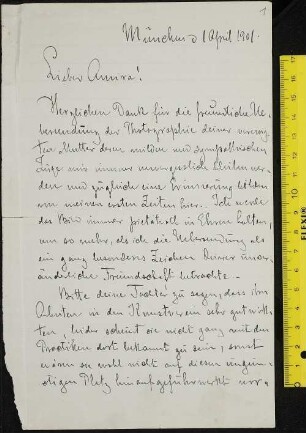 1
München 1 April 1901.
Lieber Amira!
Herzlichen Dank für die freundliche Ue-
bersendung der Photographie deiner
Mutter, deren milden und sympathischen
Züge mir immer unvergesslich bleiben wer-
den und zugleich eine Erinnerung bilden
von meinen ersten Zeiten hier. Ich werde
das Bild immer pietätvoll in Ehren halten,
um so mehr, als ich die Uebersendung als
ein ganz besonderes Zeichen Deiner unver-
änderliche Freundschaft betrachte.
Bitte deine Tochter zu sagen, dass ihre
Arbeiten in den Kunstverein sehr gut wirk-
ten, leider scheint sie nicht ganz mit den
Praktiken dort bekannt zu sein, sonst
wären sie wohl nicht auf diesen ungün-
stigen Platz hinauf